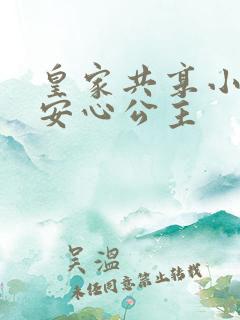 皇家共享小
安心公主
吴温
未经同意禁止转载